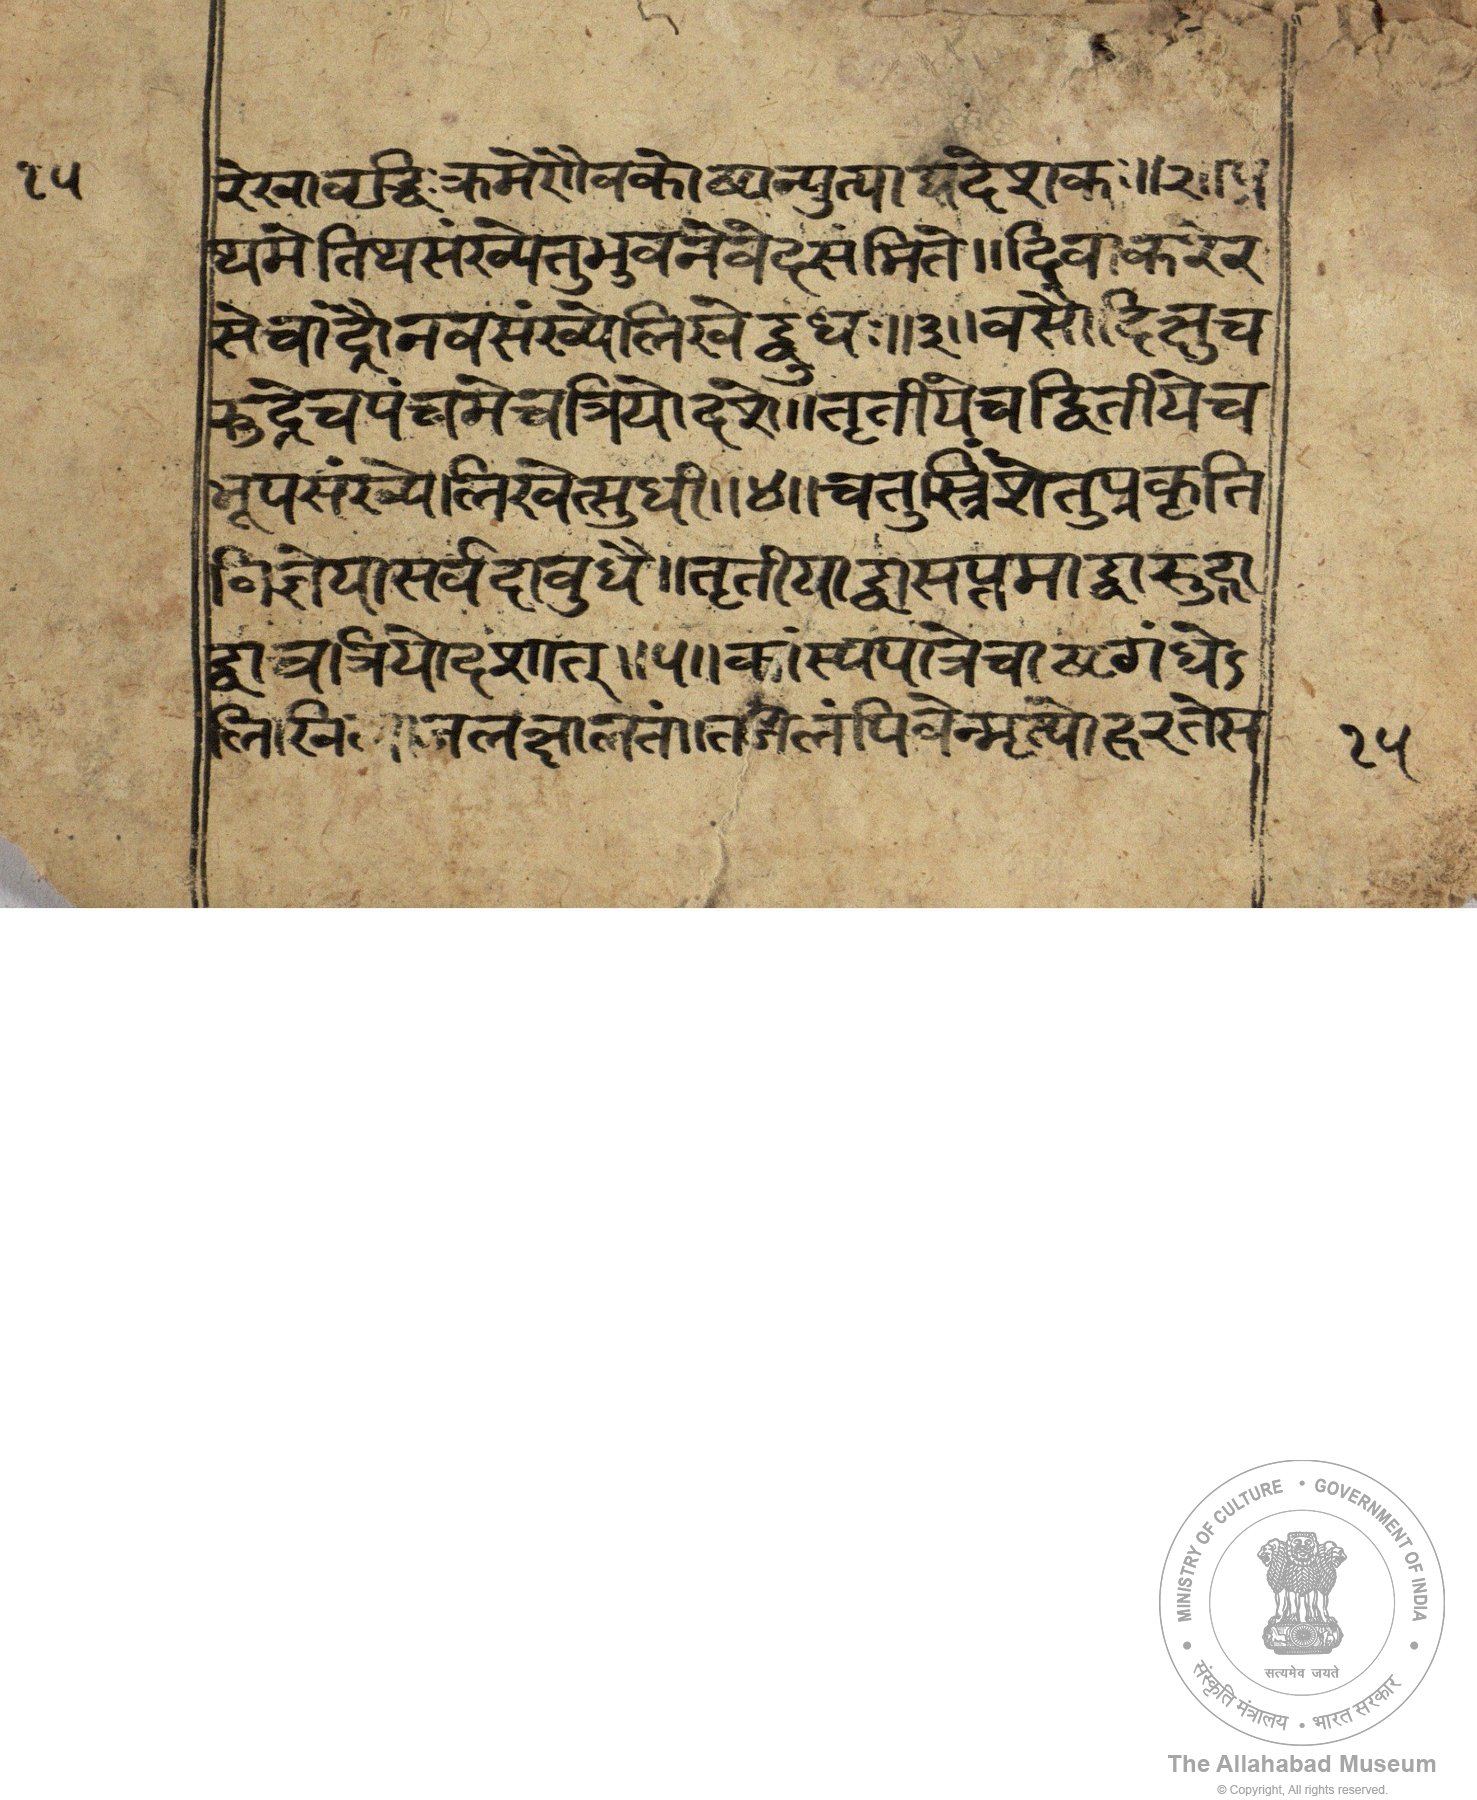 १५
रेखावृद्धिःक्रमेणैवकोष्ठान्युत्पाद्यदेशकः॥२॥प्र
थमेतिथ्यसंख्येतुभुवनेवेदसंमिते॥दिवाकरेर
सेचांद्रौनवसंख्येलिखेद्बुधः॥३॥वसौदिक्षुच
रुद्रेचपंचमेचत्रियोदशे॥तृतीयेचद्वितीयेच
भूपसंख्येलिखेत्सुधी॥४॥चतुस्त्रिंशेतुप्रकृति
र्विज्ञेयासर्वदाबुधै॥तृतीयाद्वासप्तमाद्वारुद्रा
द्वाचत्रियोदशात्॥५॥कांस्यपात्रेचाष्टगंधेऽ
लिखि जलक्षालतां॥तज्जलंपिवेन्मृत्योहरतेस
१५
MINISTRY OF CULTURE • GOVERNMENT OF INDIA
सत्यमेव जयते
संस्कृति मंत्रालय • भारत सरकार
The Allahabad Museum
© Copyright, All rights reserved.